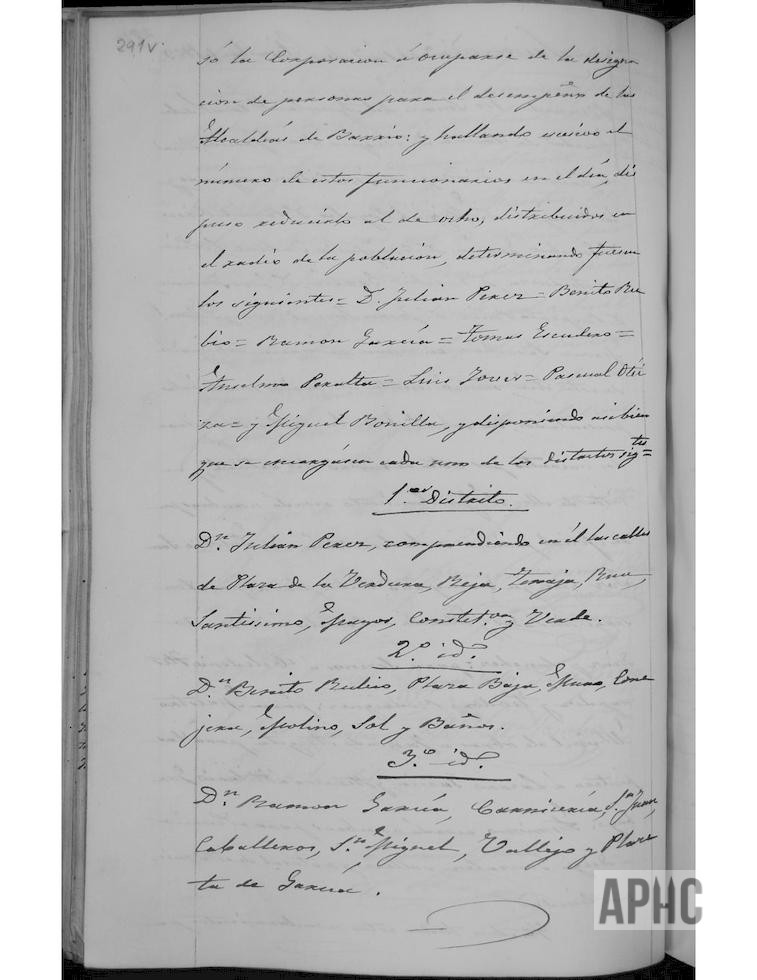 291v.
só la Corporacion á ocuparse de la designa
cion de personas para el desempeño de las
Alcaldías de Barrio: y hallando escesivo el
número de estos funcionarios en el día, dis
puso reducirlo al de ocho, distribuidos en
el radio de la población, determinando fuesen
los siguientes = D. Julian Perez = Benito Ru
bio = Ramon García = Tomas Escudero =
Anselmo Peralta = Luis Jover = Pascual Oté
za = y Miguel Bonilla, y disponiendo asi bien
que se encargásen cada uno de los distritos sigtes =
1.er Distrito.
Dn. Julián Perez, comprendiendo en él las calles
de Plaza de la Verdura, Reja, Rua,
Santísimo, Mayor, Constit.on y Verde.
2.º id.
D.n Benito Rubio, Plaza Baja, Muro, Cone
jera, Molino, Sol y Baños.
3.º id.
Dn. Ramon García, Carnicería, S.n Juan,
Caballeros, S.n Miguel, Vallejo y Plaze
ta de García.
APHC